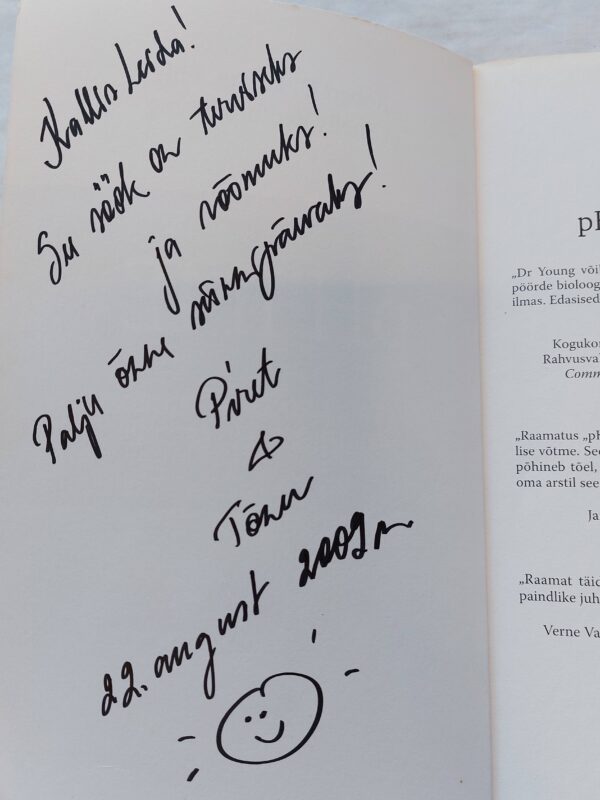 Kallis Leida!
Su söök on terviseks
ja rõõmuks!
Palju õnne sünnipäevaks!
Piret
&
Tõnu
22. august 2009
pH
„Dr Young või
pöörde bioloog
ilmas. Edasised
Kogukon
Rahvusva
Comm
„Raamatus „pH
lise võtme. See
põhineb tõel,
oma arstil see
Ja
„Raamat täid
paindlike juh
Verne Va